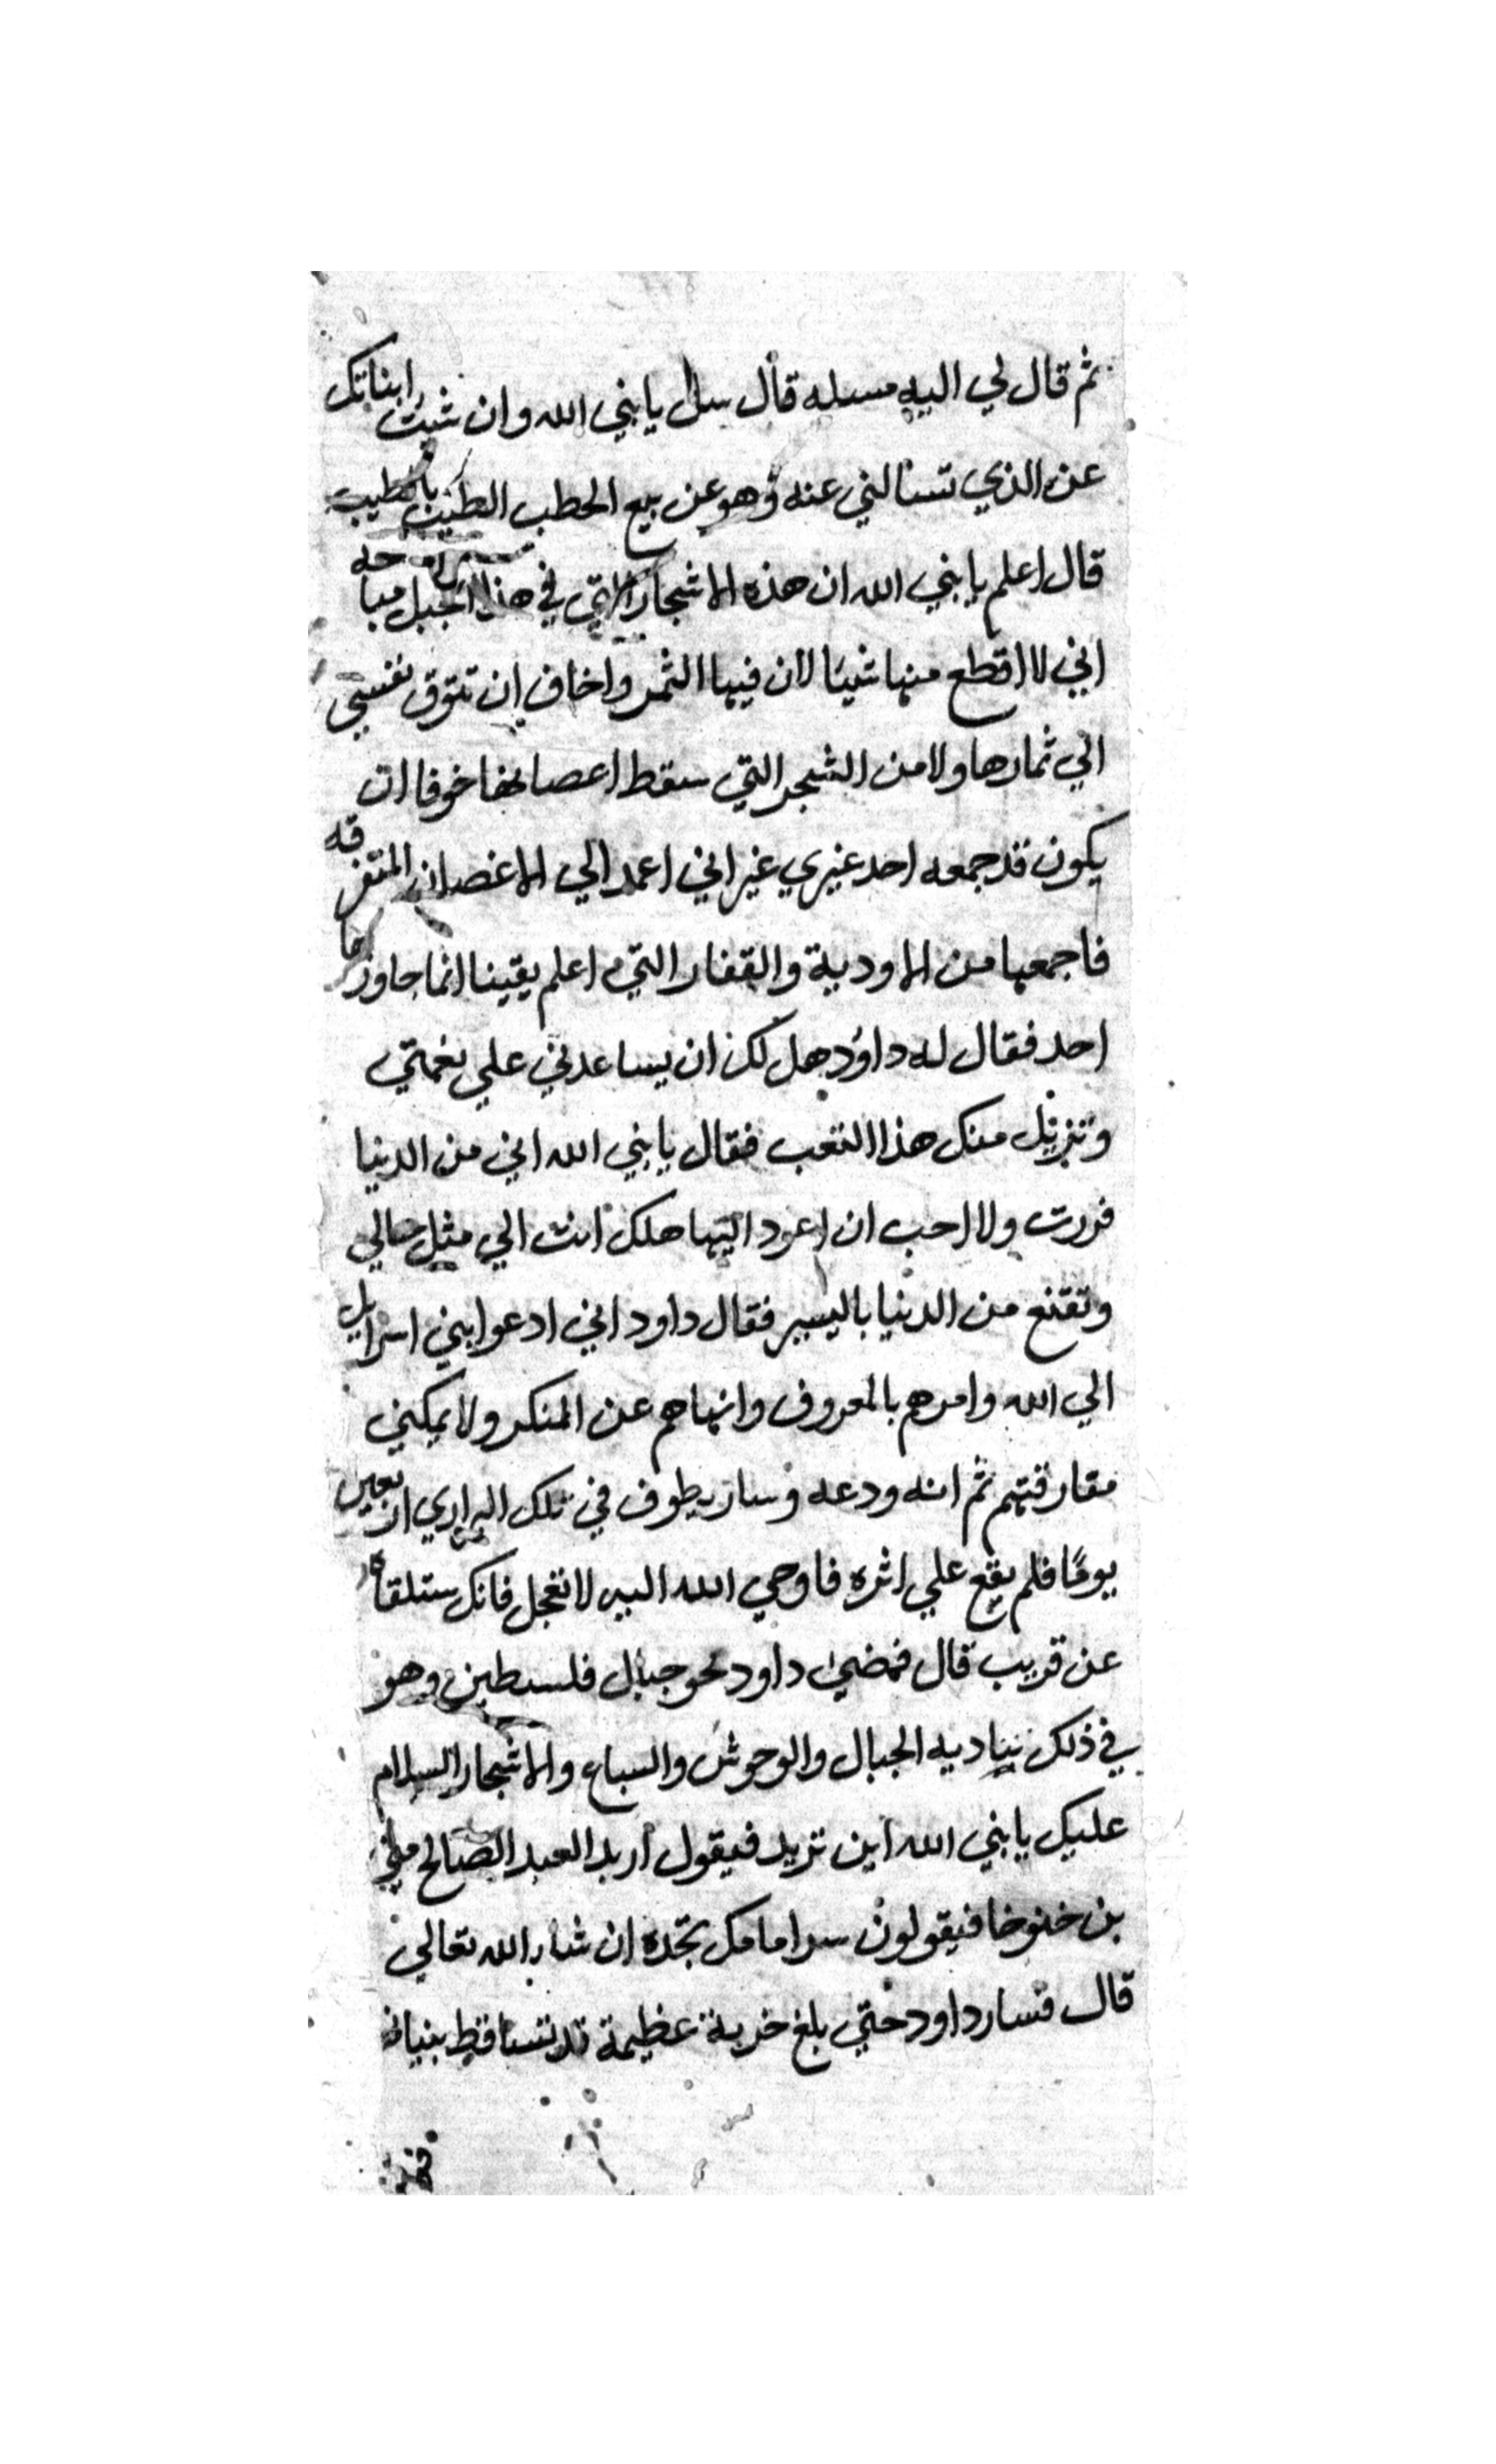 ثم قال لي اليه مسله قال سل يابني الله وان شيت ابناتك
عن الذي تسالني عنه وهو عن بيع الحطب الطيب بالطيب
قال اعلم يابني الله ان هذه الاشجار التي في هذا الجبل مباحه
اني لا اقطع منها شيا لان فيها الثمر واخاف ان تتوق نفسي
الي ثمارها ولا من الشجر التي سقط اعصانها خوفا ان
يكون قد جمعه احد غيري غير اني اعمد الي الاغصان المتفرقه
فاجمعها من الاودية والقفار التي اعلم يقينا انما جاوزها
احد فقال له داود هل لك ان يساعدني علي نعمتي
وتزيل منك هذا التعب فقال يا بني الله اني من الدنيا
فررت ولا احب ان اعود اليها هلك انت الي مثل حالي
وتقنع من الدنيا باليسير فقال داود اني ادعوا بني اسرايل
الي الله وامرهم بالمعروف وانهاهم عن المنكر ولا يمكنني
مفارقتهم ثم انه ودعه وسار يطوف في تلك البراري اربعين
يومًا فلم يقع علي اثره فاوحي الله اليه لا تعجل فانك ستلقاه
عن قريب قال فمضي داود نحو جبال فلسطين وهو
في ذلك يناديه الجبال والوحوش والسباع والاشجار السلام
عليك يا بني الله اين تريد فيقول اريد العبد الصالح متي
بن خنوخا فيقولون سر امامك تجده ان شا الله تعالي
قال فسار داود حتي بلغ خربة عظيمة قد تساقط بنيانه